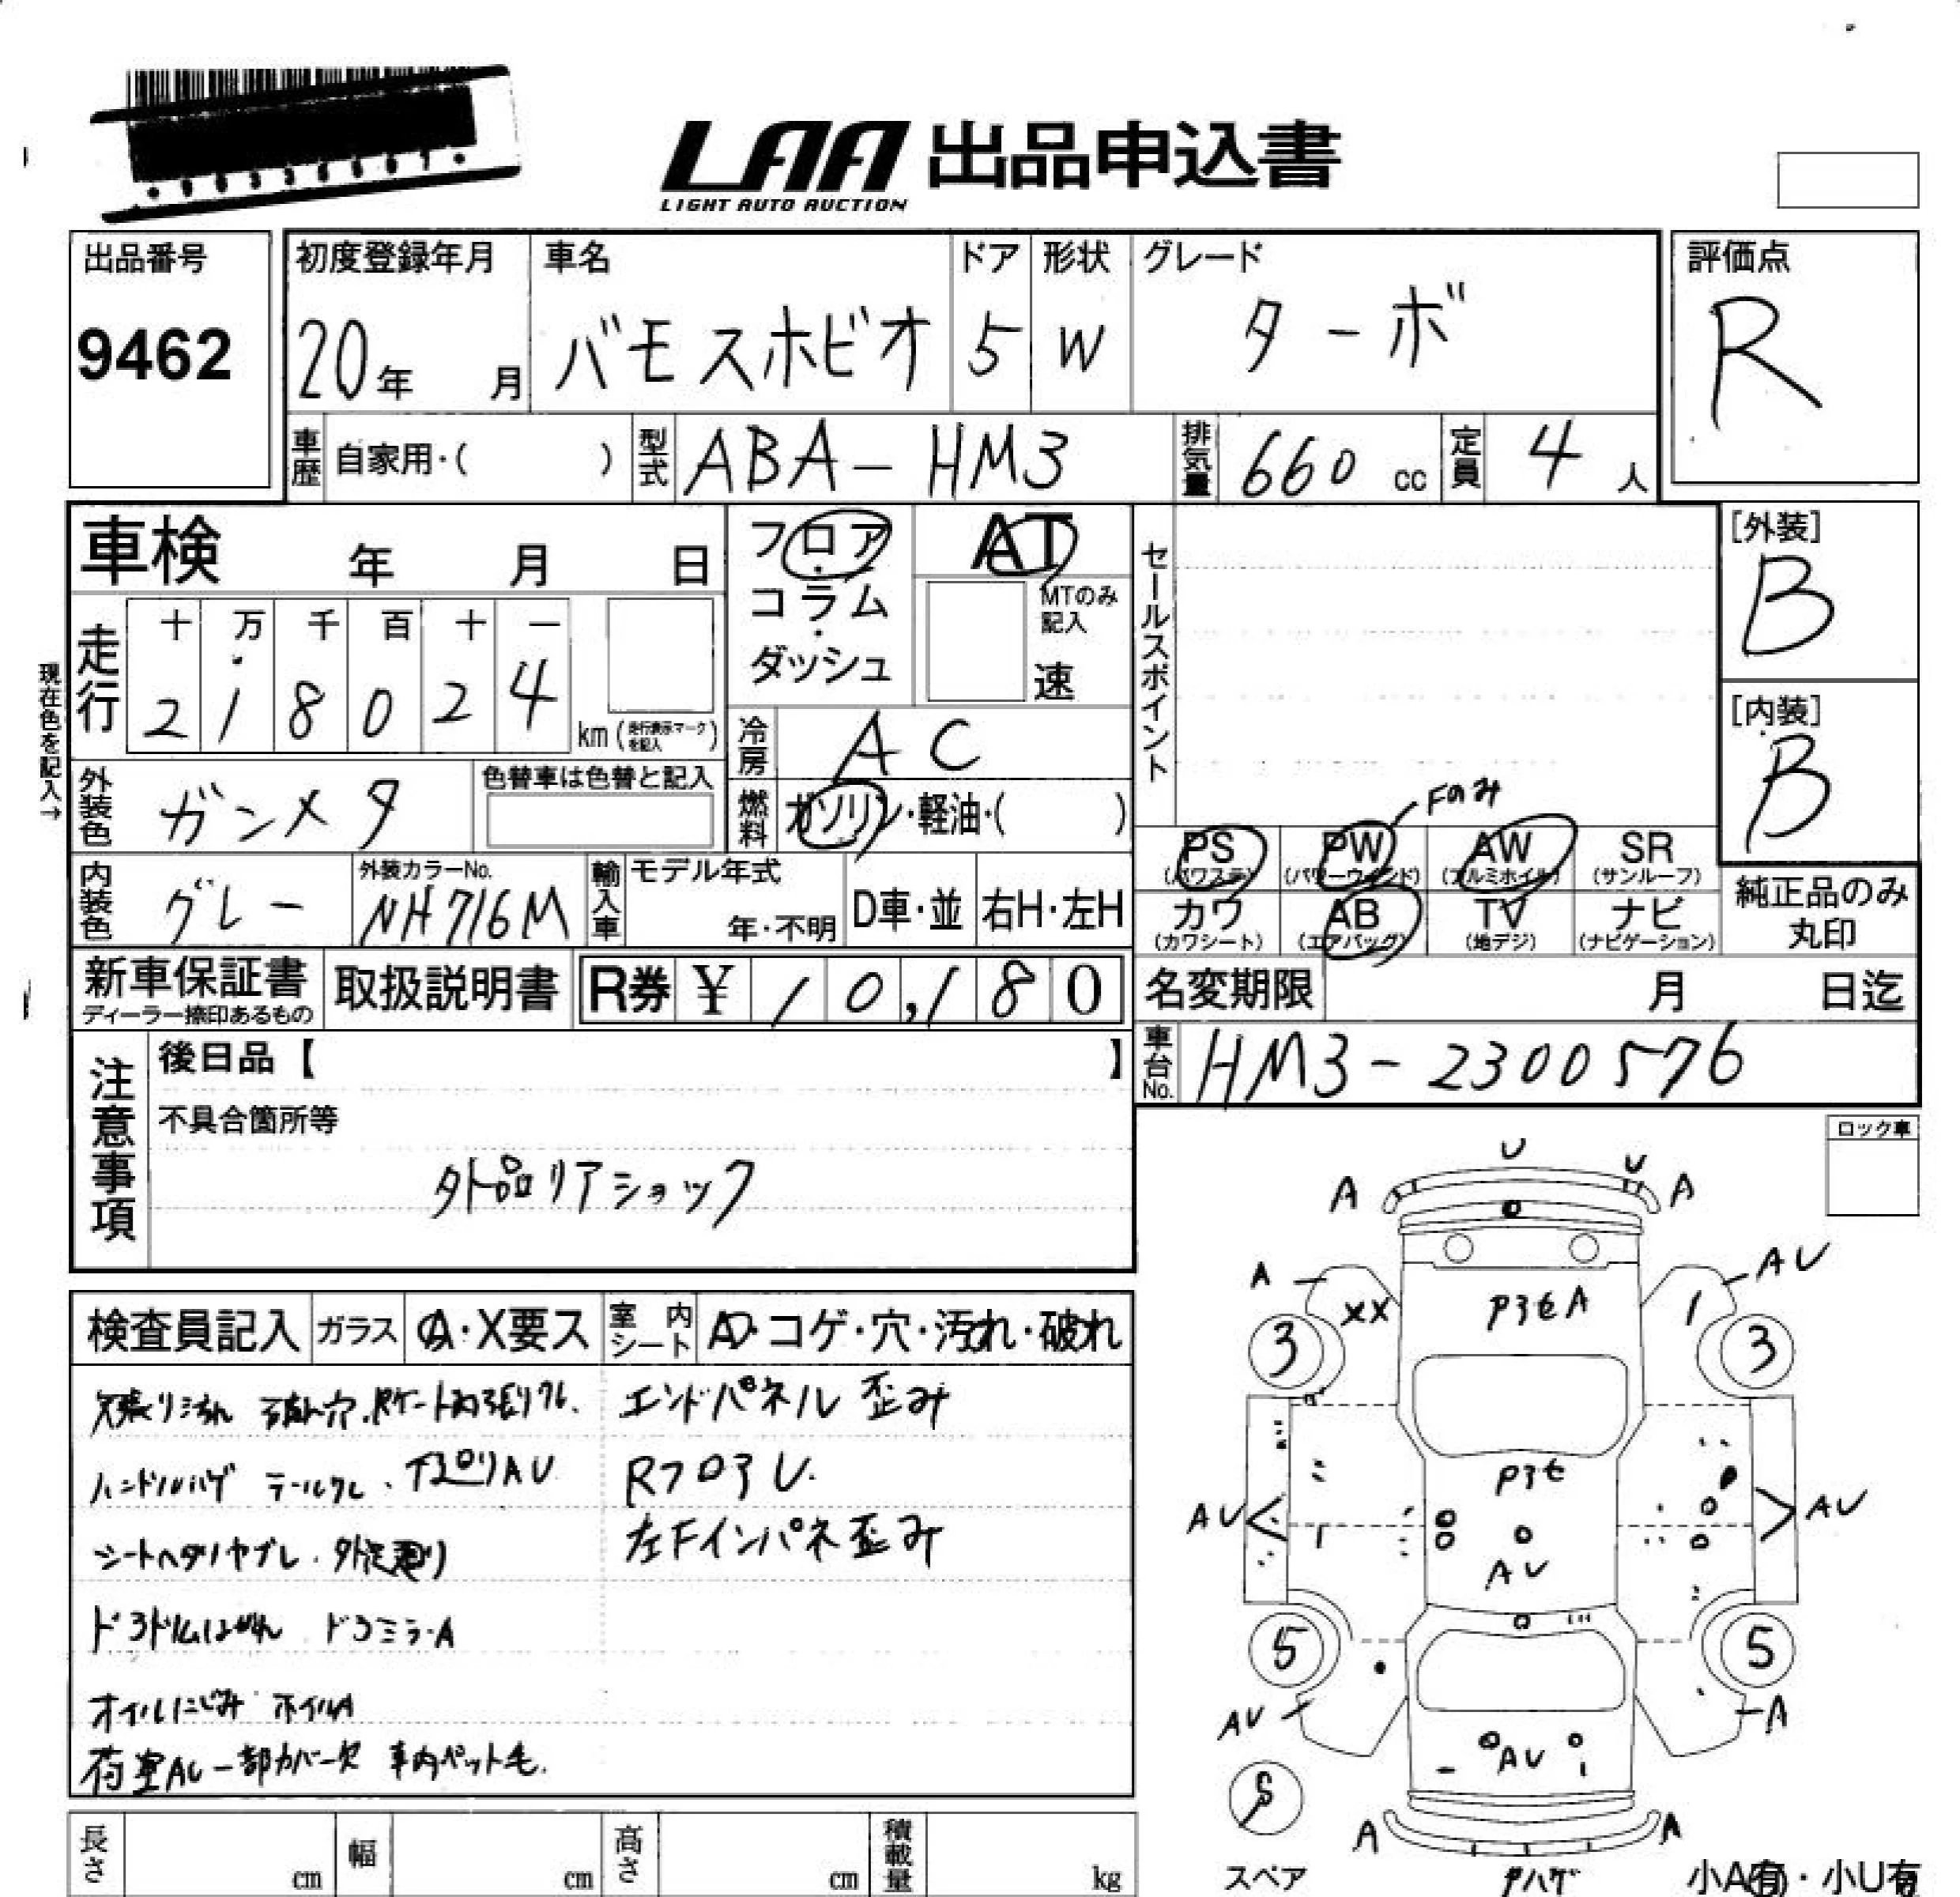 LAA 出品申込書
LIGHT AUTO AUCTION
出品番号
9462
初度登録年月
20年 月
車名
バモスホビオ
ドア
5
形状
W
グレード
ターボ
評価点
R
車歴 自家用・( )
型式 ABA-HM3
排気量 660 cc
定員 4 人
車検 年 月 日
フロア・コラム・ダッシュ
AT
MTのみ記入
速
セールスポイント
[外装]
B
[内装]
B
現在色を記入→
走行 十 万 千 百 十 一
2 1 8 0 2 4 km (走行表示マークを記入)
冷房 AC
燃料 ガソリン・軽油・( )
外装色 ガンメタ
色替車は色替と記入
内装色 グレー
外装カラーNo.
NH716M
輸入車 モデル年式
年・不明
D車・並
右H・左H
Fのみ
PS (パワステ)
PW (パワーウインド)
AW (アルミホイル)
SR (サンルーフ)
カワ (カワシート)
AB (エアバッグ)
TV (地デジ)
ナビ (ナビゲーション)
純正品のみ丸印
新車保証書
ディーラー捺印あるもの
取扱説明書
R券 ¥ 10,180
名変期限 月 日迄
車台No. HM3-2300576
注意事項
後日品【 】
不具合箇所等
外品リアショック
ロック車
検査員記入
ガラス A・X要ス
室内シート A・コゲ・穴・汚れ・破れ
エンドパネル 歪み
ハンドルハゲ テールワレ・下廻りAU
RフロアU.
シートヘタリヤブレ・
左Fインパネ歪み
ドアミラーA
オイルにじみ ホイルA
荷室AU 一部カバー欠 車内ペット毛.
U
U
A
A
A
AU
XX
PタセA
3
3
Pタセ
AU
AU
AU
5
5
AU
A
AU
S
スペア
A
A
小A有・小U有
長さ cm
幅 cm
高さ cm
積載量 kg